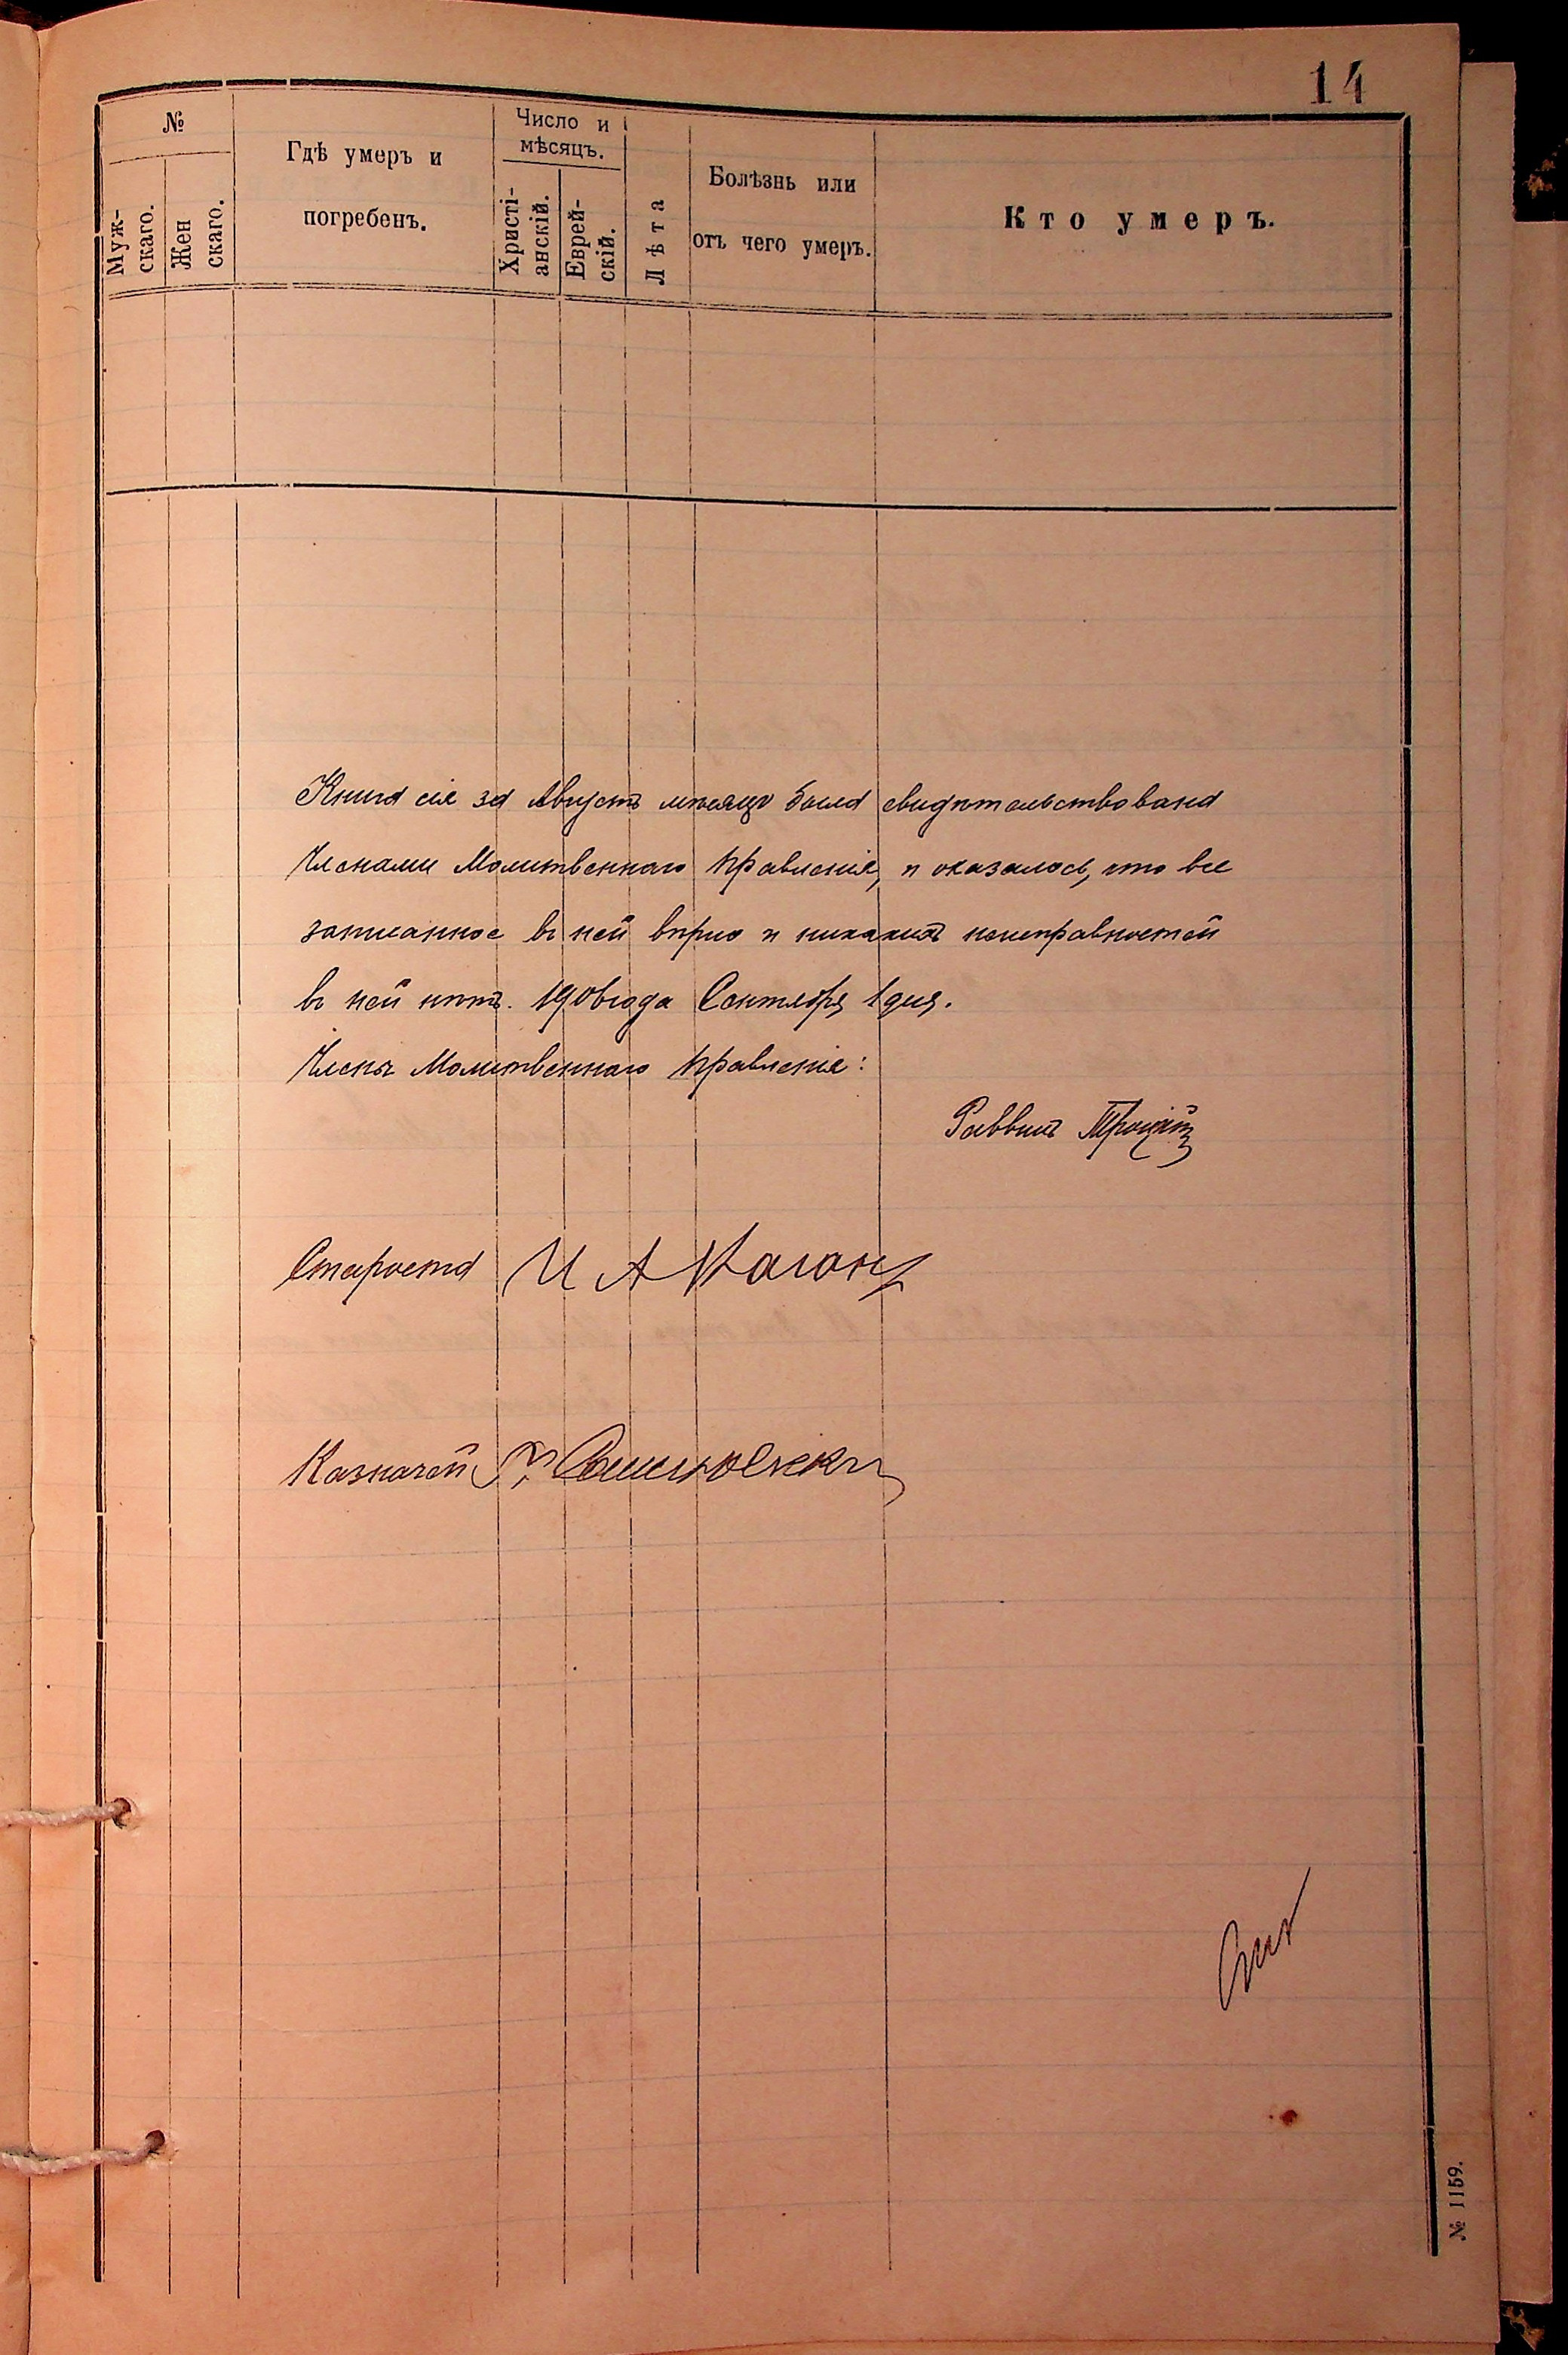 14
№
Муж-
скаго.
Жен
скаго.
Гдѣ умеръ и
погребенъ.
Число и
мѣсяцъ.
Христі-
анскій.
Еврей-
скій.
Лѣта
Болѣзнь или
отъ чего умеръ.
Кто умеръ.
Книга сія за Августъ мѣсяцъ была свидѣтельствована
Членами Молитвеннаго Правленія, и оказалось, что все
записанное въ ней вѣрно и никакихъ неисправностей
въ ней нѣтъ. 1906 года Сентября 1 дня.
Члены Молитвеннаго Правленія:
Раввинъ
Староста И А Каганъ
Казначей
№ 1159.